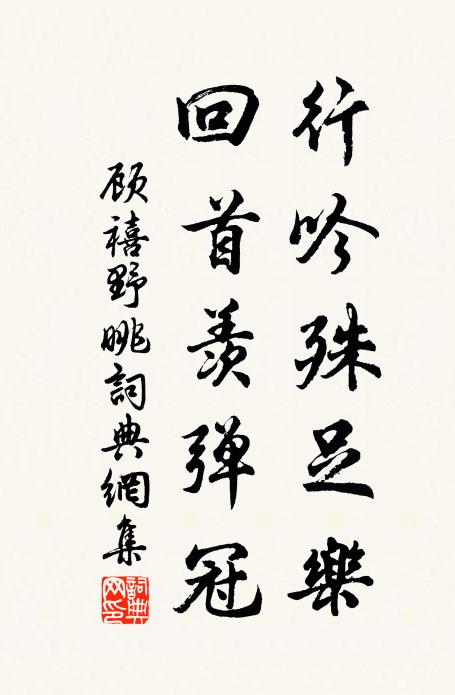 行吟殊足樂
回首羨弹冠
顾禧野眺詞典網集
詞典
网印